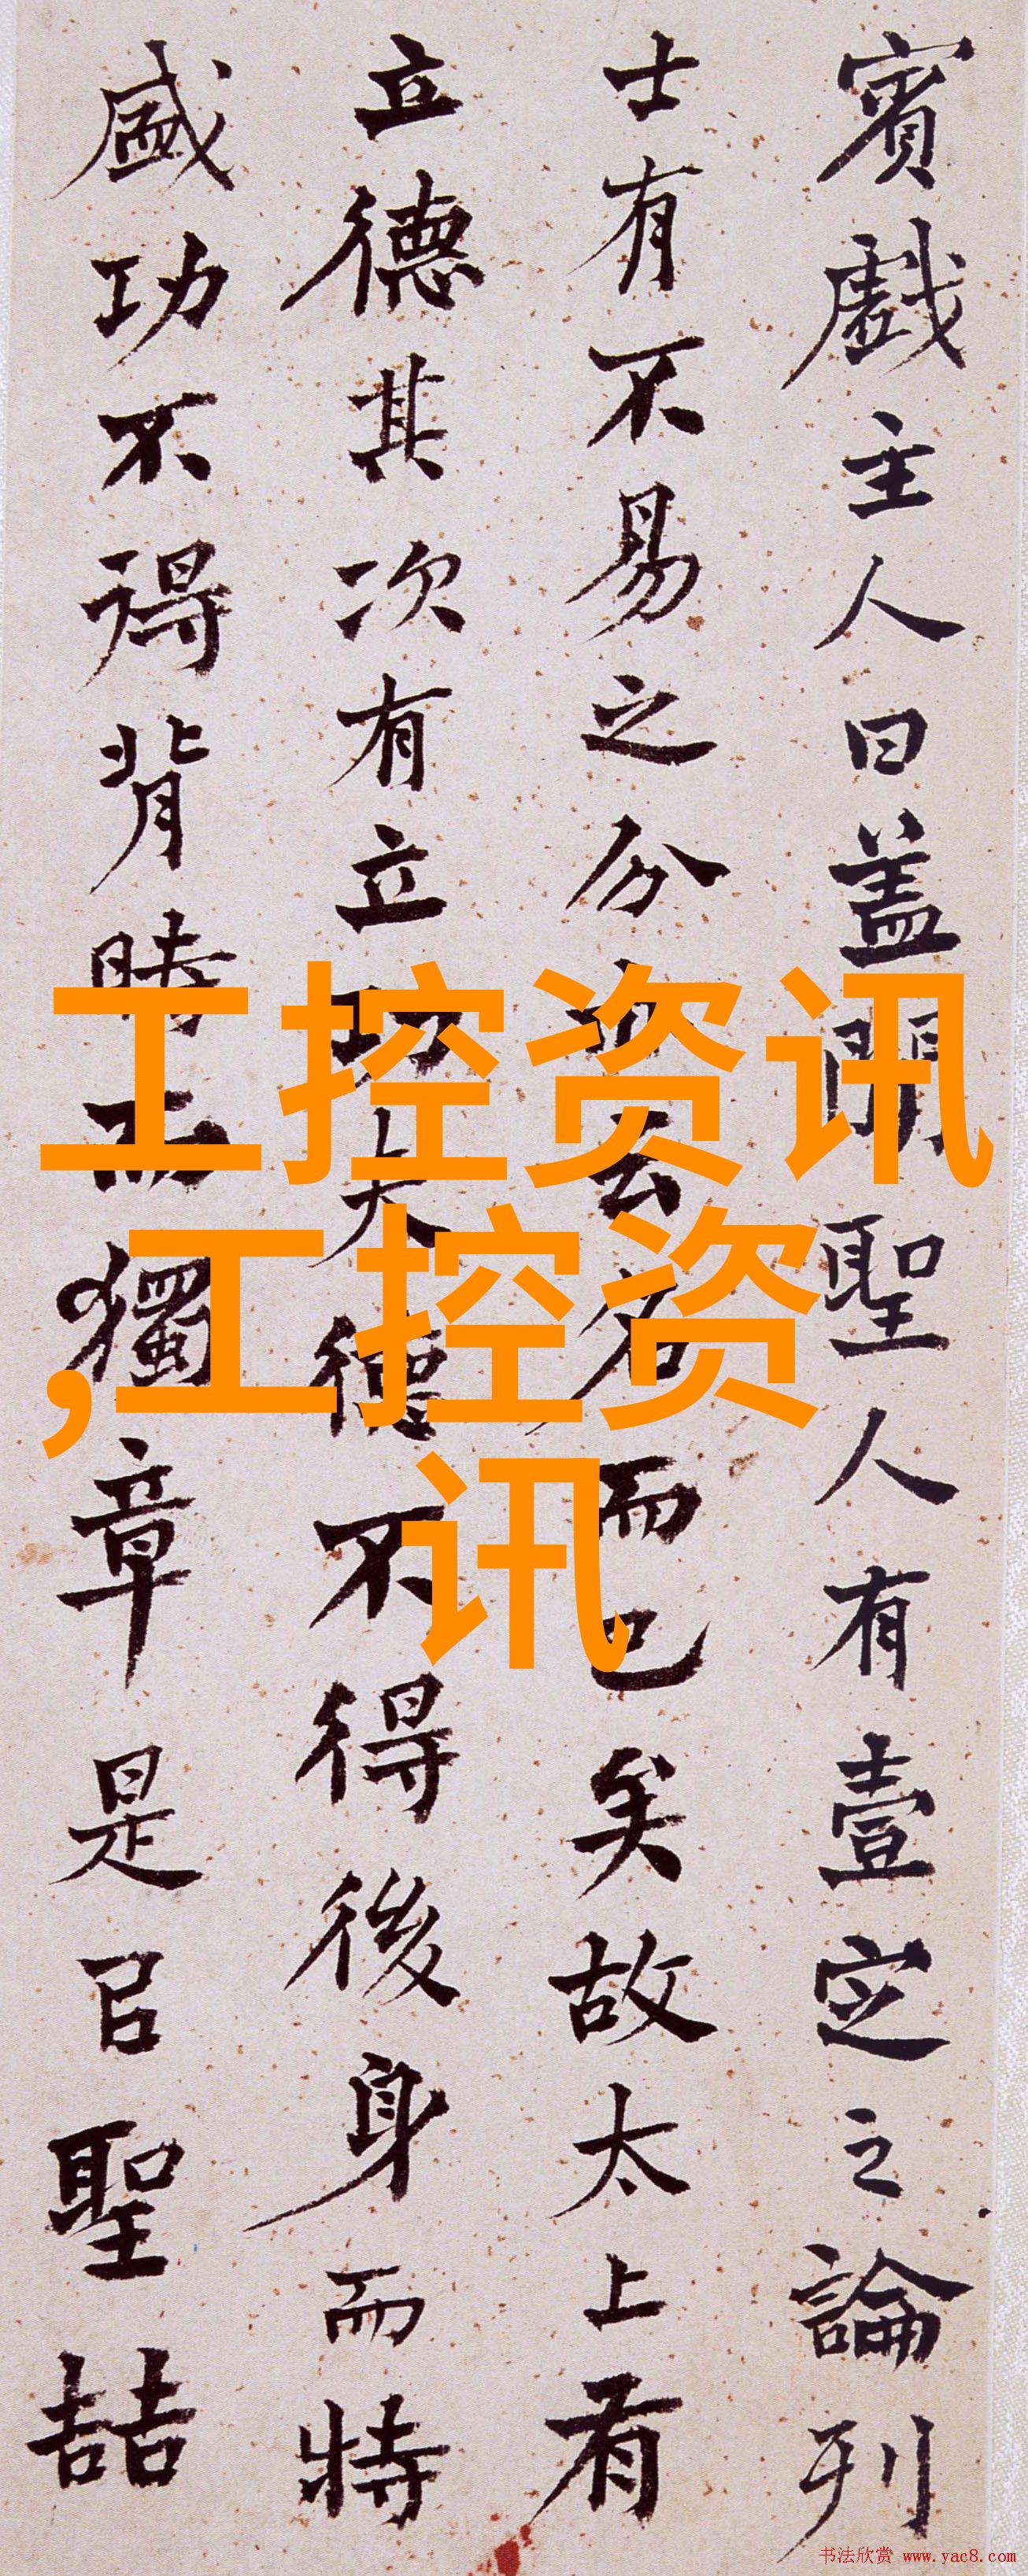 賓戲主人曰盖聞聖人有壹定之論列
士有不易之分亦云名而已矣故太上有
立德其次有立功夫德不得後身而特
盛功不得背時而獨章是㠯聖喆
工控资讯
,工控资
讯
书法欣赏 www.yac8.com